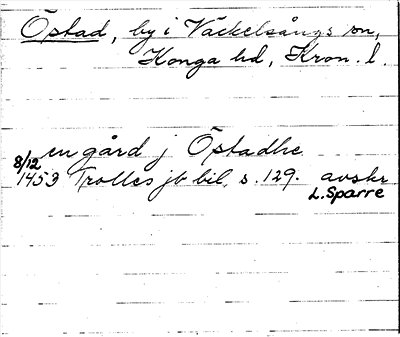 Östad, by i Väckelsångs sn,
Konga hd, Kron. l.
en gård j Östadhe
8/12 1453 Trolles jb bil. s. 129. avskr
L. Sparre